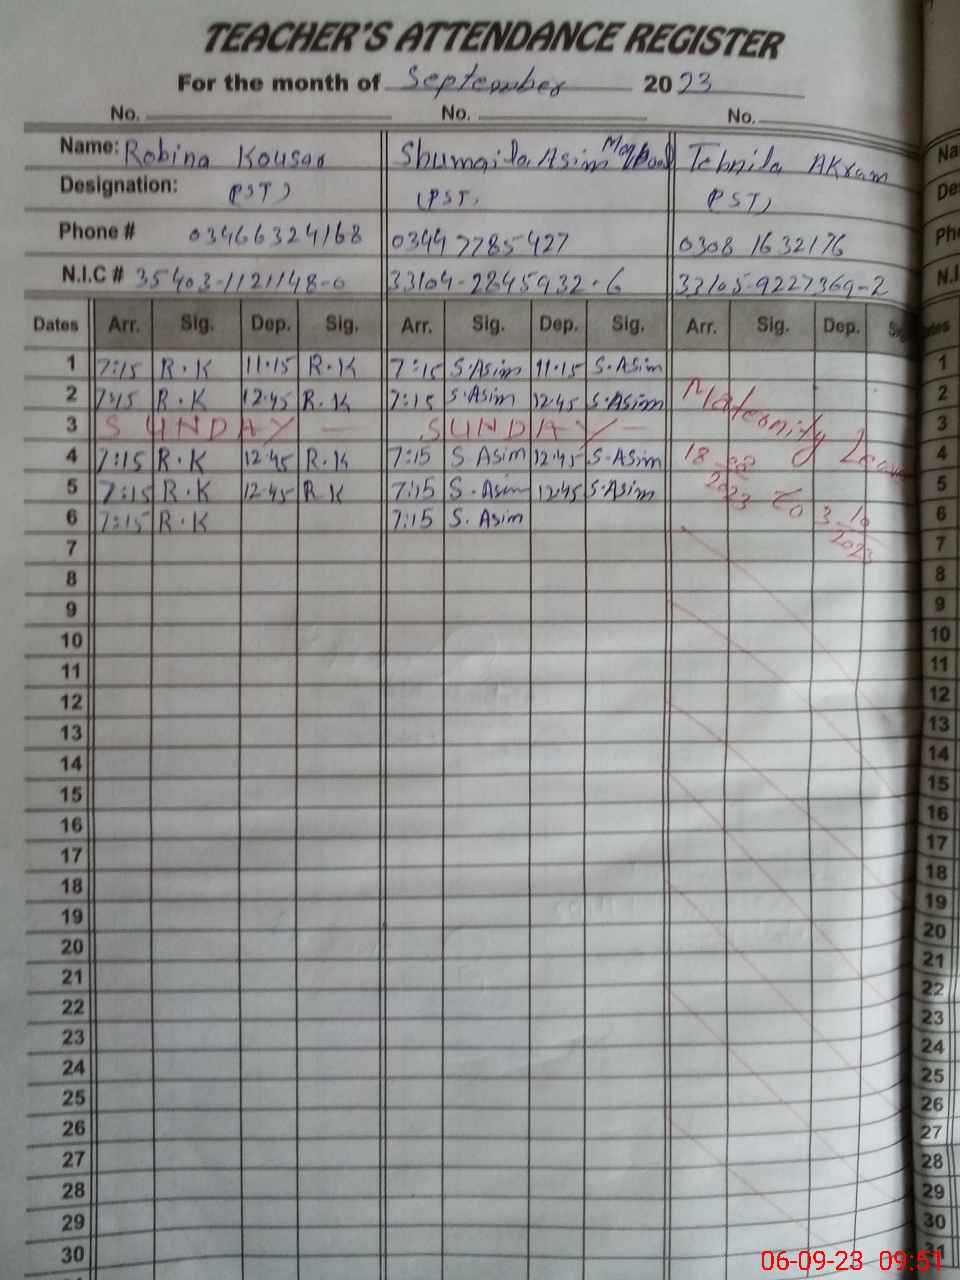 TEACHER'S ATTENDANCE REGISTER
For the month of September 2023
No. No. No.
Name: Robina Kousar Shumaila Asim Maqbool Tehnila Akram
Designation: (PST) (PST) (PST)
Phone # 03466324168 03447785427 0308 1632176
N.I.C # 35403-1121148-0 33104-2845932-6 33105-9227369-2
Dates Arr. Sig. Dep. Sig. Arr. Sig. Dep. Sig. Arr. Sig. Dep.
1 7:15 R.K 11.15 R.K 7:15 S.Asim 11.15 S.Asim 1
2 7:15 R.K 12.45 R.K 7:15 S.Asim 12.45 S.Asim Maternity Leave 2
3 SUNDAY — SUNDAY — 3
4 7:15 R.K 12.45 R.K 7:15 S Asim 12.45 S.Asim 18 08 2023 4
5 7:15 R.K 12.45 R.K 7:15 S.Asim 12.45 S.Asim to 5
6 7:15 R.K 7:15 S.Asim 3 10 2023 6
7 7
8 8
9 9
10 10
11 11
12 12
13 13
14 14
15 15
16 16
17 17
18 18
19 19
20 20
21 21
22 22
23 23
24 24
25 25
26 26
27 27
28 28
29 29
30 30
31
06-09-23 09:51